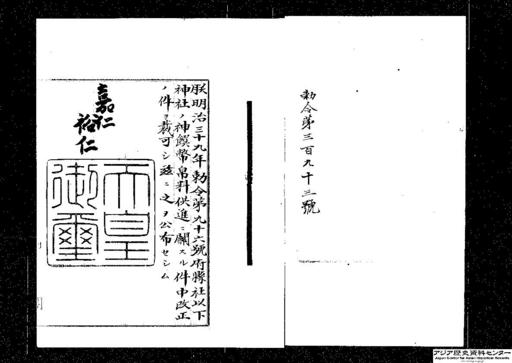 勅令第三百九十三號
朕明治三十九年勅令第九十六號府縣社以下
神社ノ神饌幣帛料供進ニ關スル件中改正
ノ件ヲ裁可シ茲ニ之ヲ公布セシム
嘉仁
裕仁
天皇御璽
アジア歴史資料センター
Japan Center for Asian Historical Records